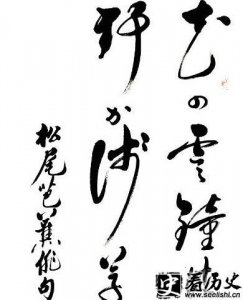 花の雲鐘
野か浅草
松尾芭蕉俳句
看历史
www.seelishi.cn